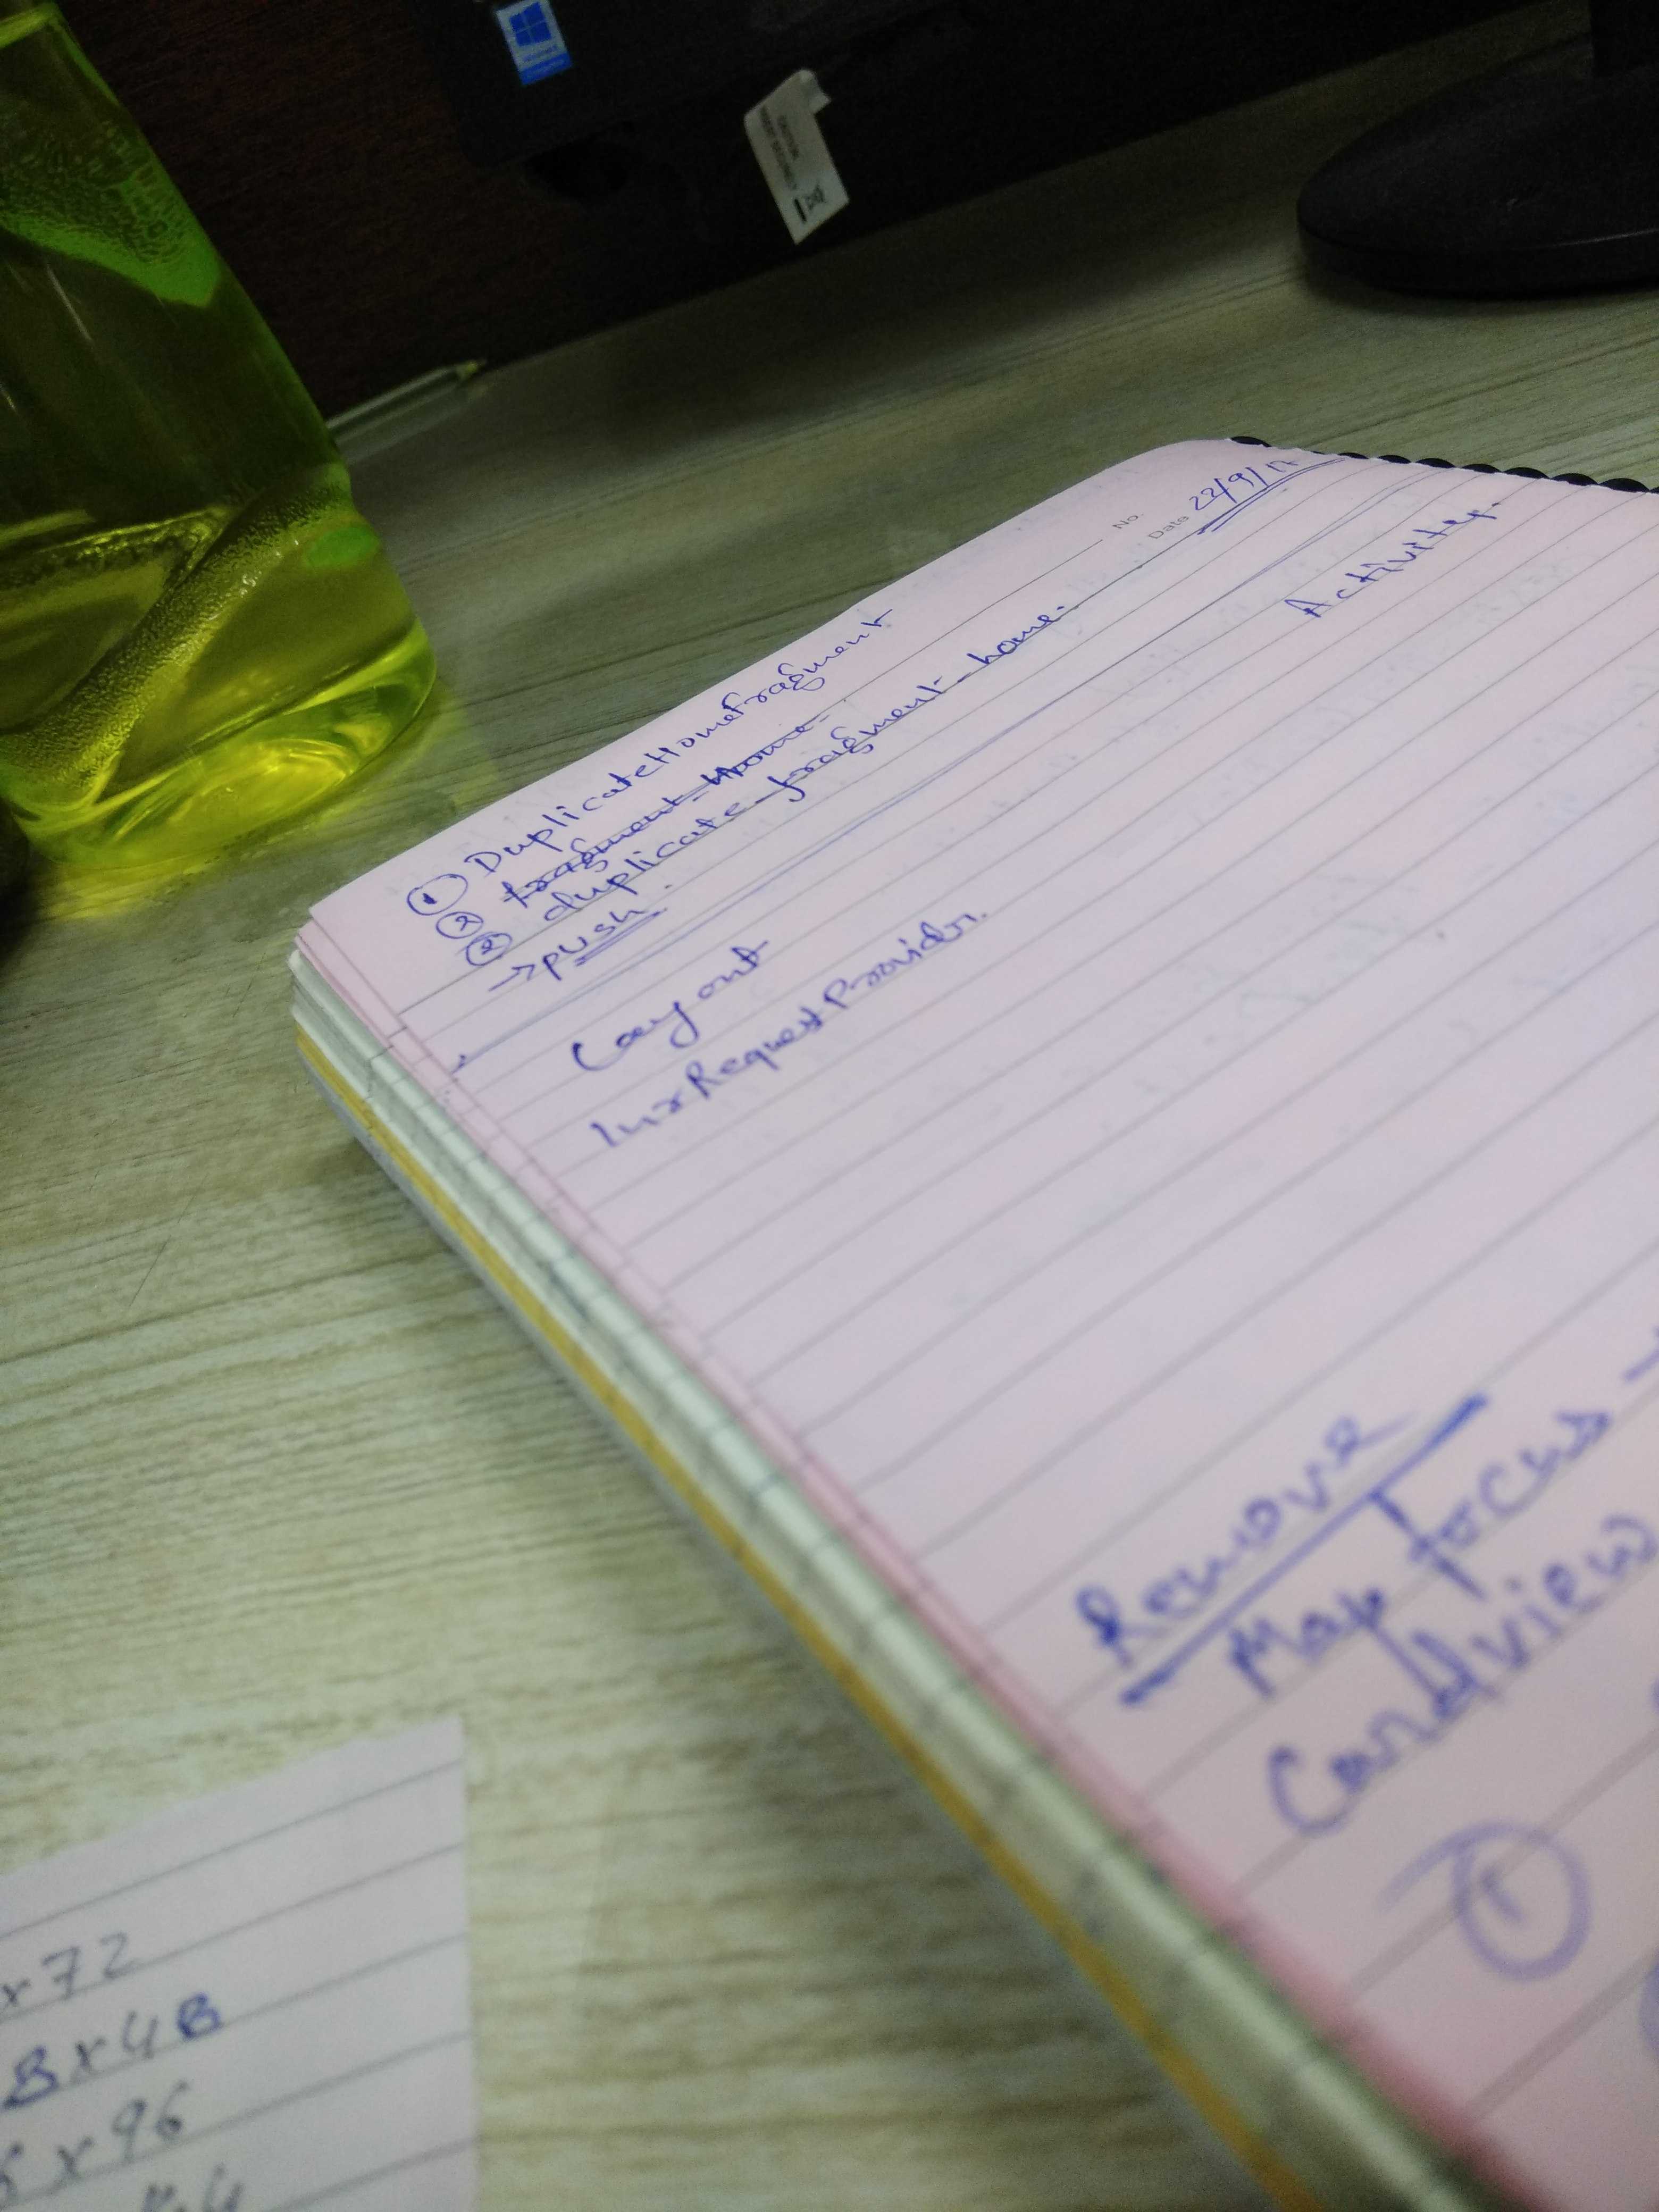 No.
Date 22/9/17
① DuplicateHomeFragment
② fragment_Home-
② duplicate_fragment_home.
→ push.
Activity.
Layout
Remove
Map focus →
Cardview
①
x72
8x48
x96